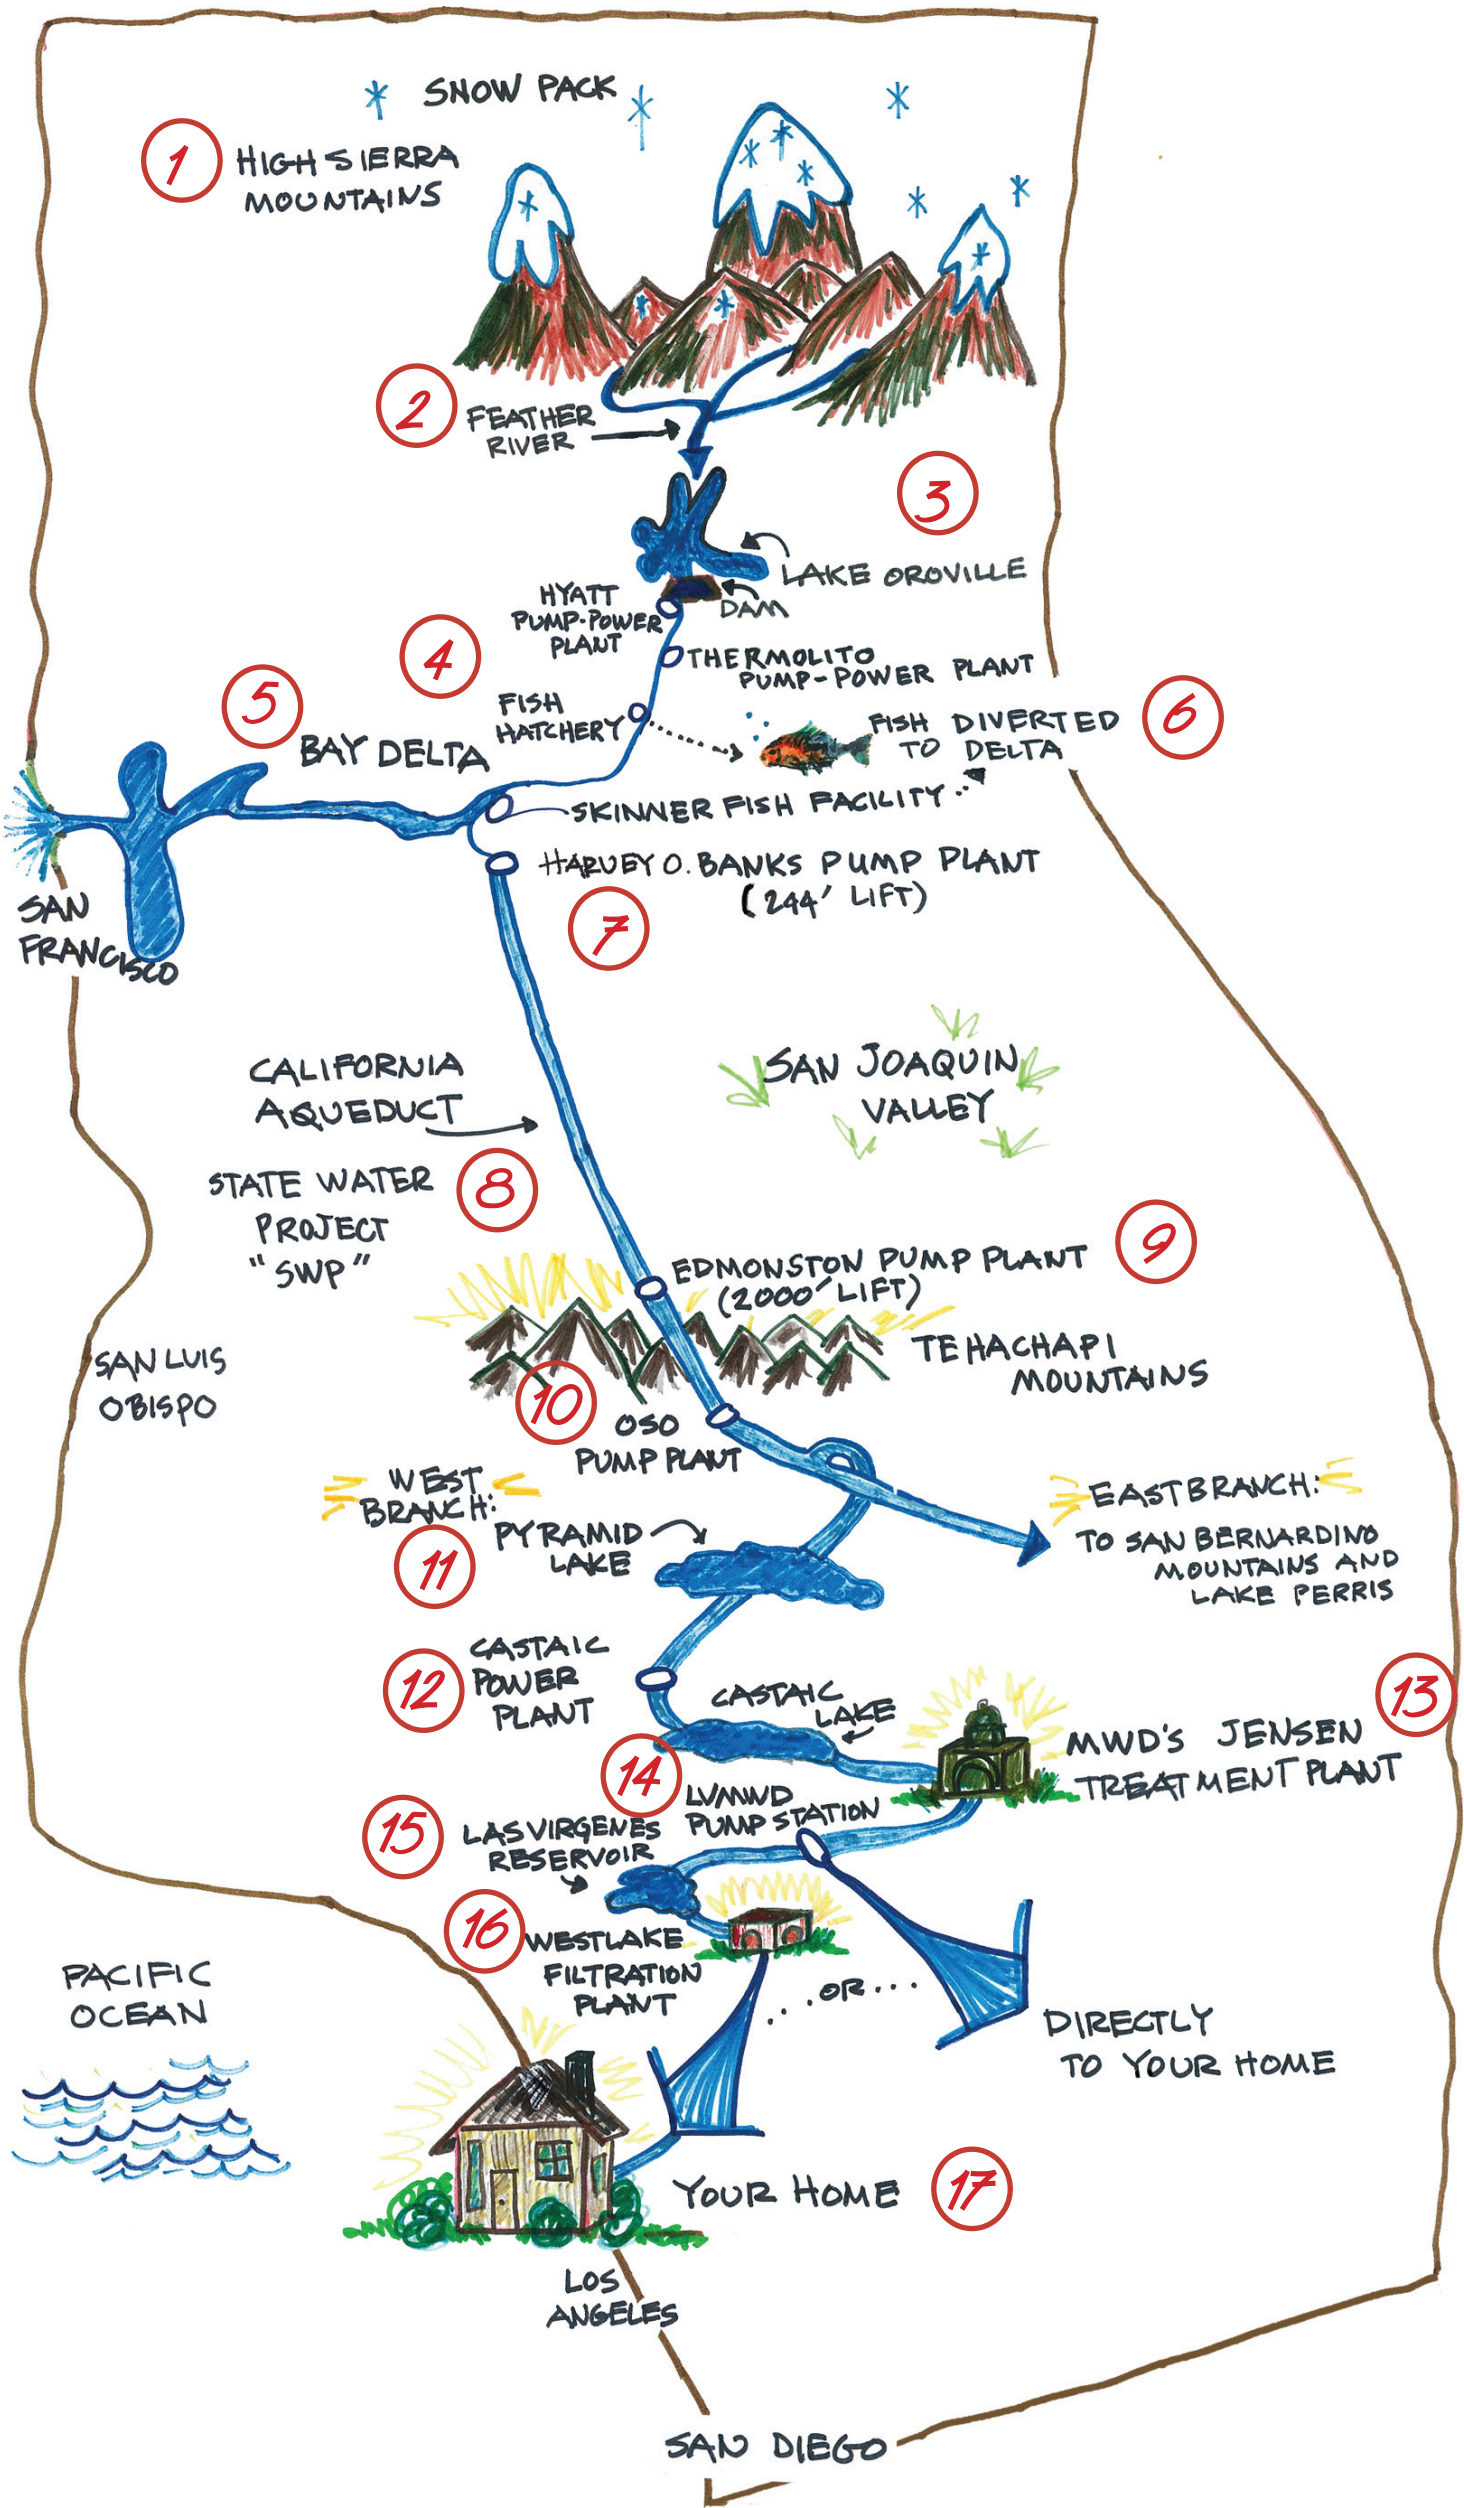 SNOW PACK
1
HIGH SIERRA
MOUNTAINS
2
FEATHER
RIVER
3
LAKE OROVILLE
DAM
HYATT
PUMP-POWER
PLANT
4
THERMOLITO
PUMP-POWER PLANT
FISH
HATCHERY
5
BAY DELTA
6
FISH DIVERTED
TO DELTA
SKINNER FISH FACILITY
HARVEY O. BANKS PUMP PLANT
(244' LIFT)
7
SAN
FRANCISCO
CALIFORNIA
AQUEDUCT
SAN JOAQUIN
VALLEY
STATE WATER
PROJECT
"SWP"
8
9
EDMONSTON PUMP PLANT
(2000' LIFT)
TEHACHAPI
MOUNTAINS
SAN LUIS
OBISPO
10
OSO
PUMP PLANT
WEST
BRANCH:
EAST BRANCH:
TO SAN BERNARDINO
MOUNTAINS AND
LAKE PERRIS
11
PYRAMID
LAKE
12
CASTAIC
POWER
PLANT
CASTAIC
LAKE
13
MWD'S JENSEN
TREATMENT PLANT
14
LVMWD
PUMP STATION
15
LAS VIRGENES
RESERVOIR
16
WESTLAKE
FILTRATION
PLANT
..OR...
DIRECTLY
TO YOUR HOME
PACIFIC
OCEAN
YOUR HOME
17
LOS
ANGELES
SAN DIEGO